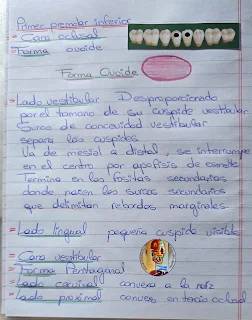 Primer premolar inferior
- Cara oclusal
- Forma ovoide
Forma Ovoide
- Lado vestibular Desproporcionado
por el tamaño de su cuspide vestibular
Surco de concavidad vestibular
separa las cuspides
Va de mesial a distal, se interrumpe
en el centro por apofisis de esmalte
Termina en las fositas secundarias
donde nacen los surcos secundarios
que delimitan rebordes marginales.
- Lado lingual pequeña cuspide visible
- Cara vestibular
- Forma Pentagonal
- Lado cervical convexa a la raiz
- Lado proximal convexo en tercio oclusal